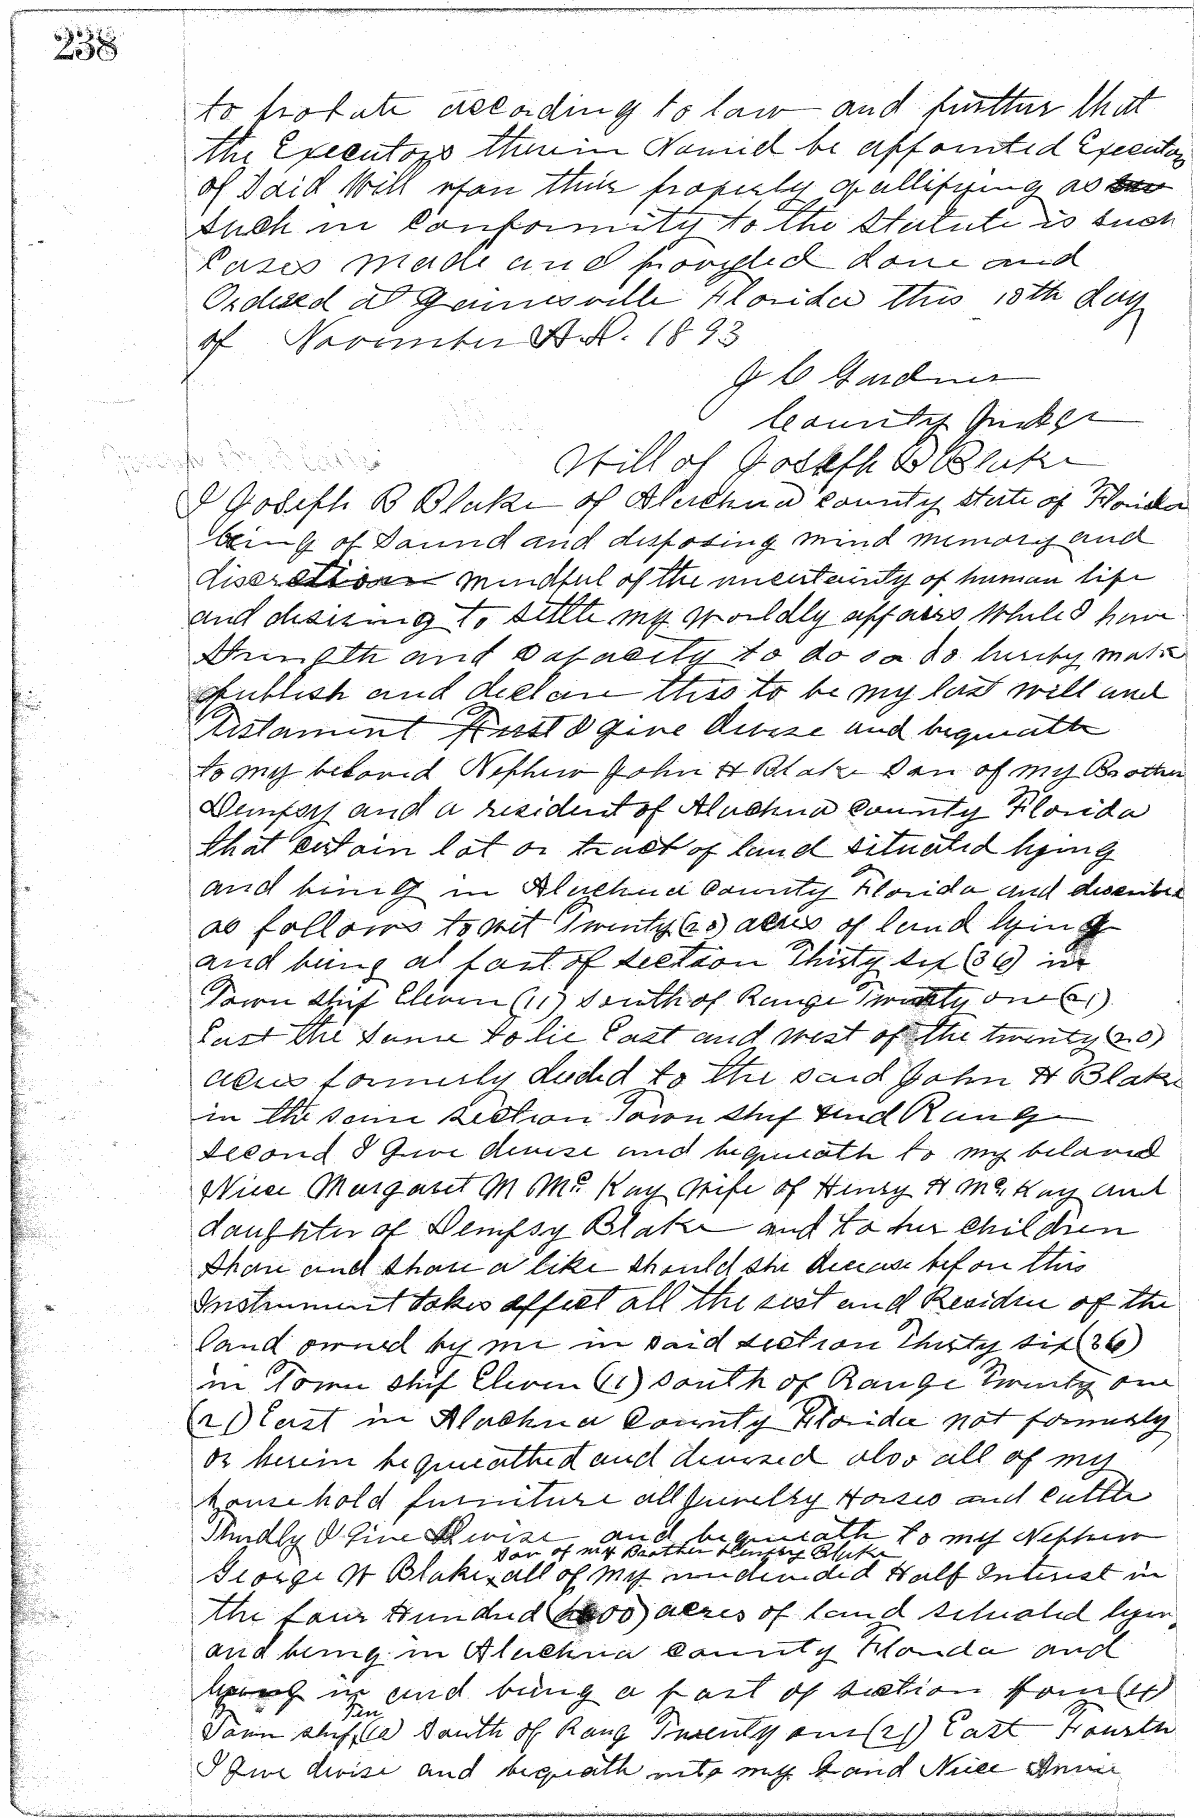 238
to probate according to law and further that
the Executors therein Named be appointed Executors
of Said Will upon their properly quallifying as
such in Conformity to the Statute is such
Cases made and provided done and
Ordered at Gainesville Florida this 18th day
of November A.D. 1893
J C Gardner
County Judge
Will of Joseph B Blake
I Joseph B Blake of Alachua County State of Florida
being of Sound and disposing mind memory and
discretion mindful of the uncertainty of human life
and desiring to settle my worldly affairs While I have
Strength and Capacity to do so do hereby make
publish and declare this to be my last will and
Testament First I give devise and bequeath
to my beloved Nephew John H Blake Son of my Brother
Dempsy and a resident of Alachua County Florida
that certain lot or tract of land situated lying
and being in Alachua County Florida and described
as follows to wit Twenty (20) acres of land lying
and being at part of section Thirty six (36) in
Town ship Eleven (11) south of Range Twenty one (21)
East the Same to lie East and west of the twenty (20)
acres formerly deeded to the said John H Blake
in the same section Town ship and Range
second I Give devise and bequeath to my beloved
Niece Margaret M Mc Kay wife of Henry H Mc Kay and
daughter of Dempsy Blake and to her children
Share and share a like should she decease before this
Instrument takes effect all the rest and Residue of the
land owned by me in said section Thirty six (36)
in Town ship Eleven (11) south of Range Twenty one
(21) East in Alachua County Florida not formerly
or herein bequeathed and devised also all of my
household furniture all Juvelry Horses and cattle
Thirdly I Give Devise and bequeath to my Nephew
son of my Brother Dempsy Blake
George W Blake all of my undevided Half Interest in
the four Hundred (400) acres of land situated lying
and being in Alachua County Florida and
lying in and being a part of section four (4)
Ten
Town ship (10) South of Rang Twenty one (21) East Fourth
I Give devise and bequeath unto my Grand Niece Annie